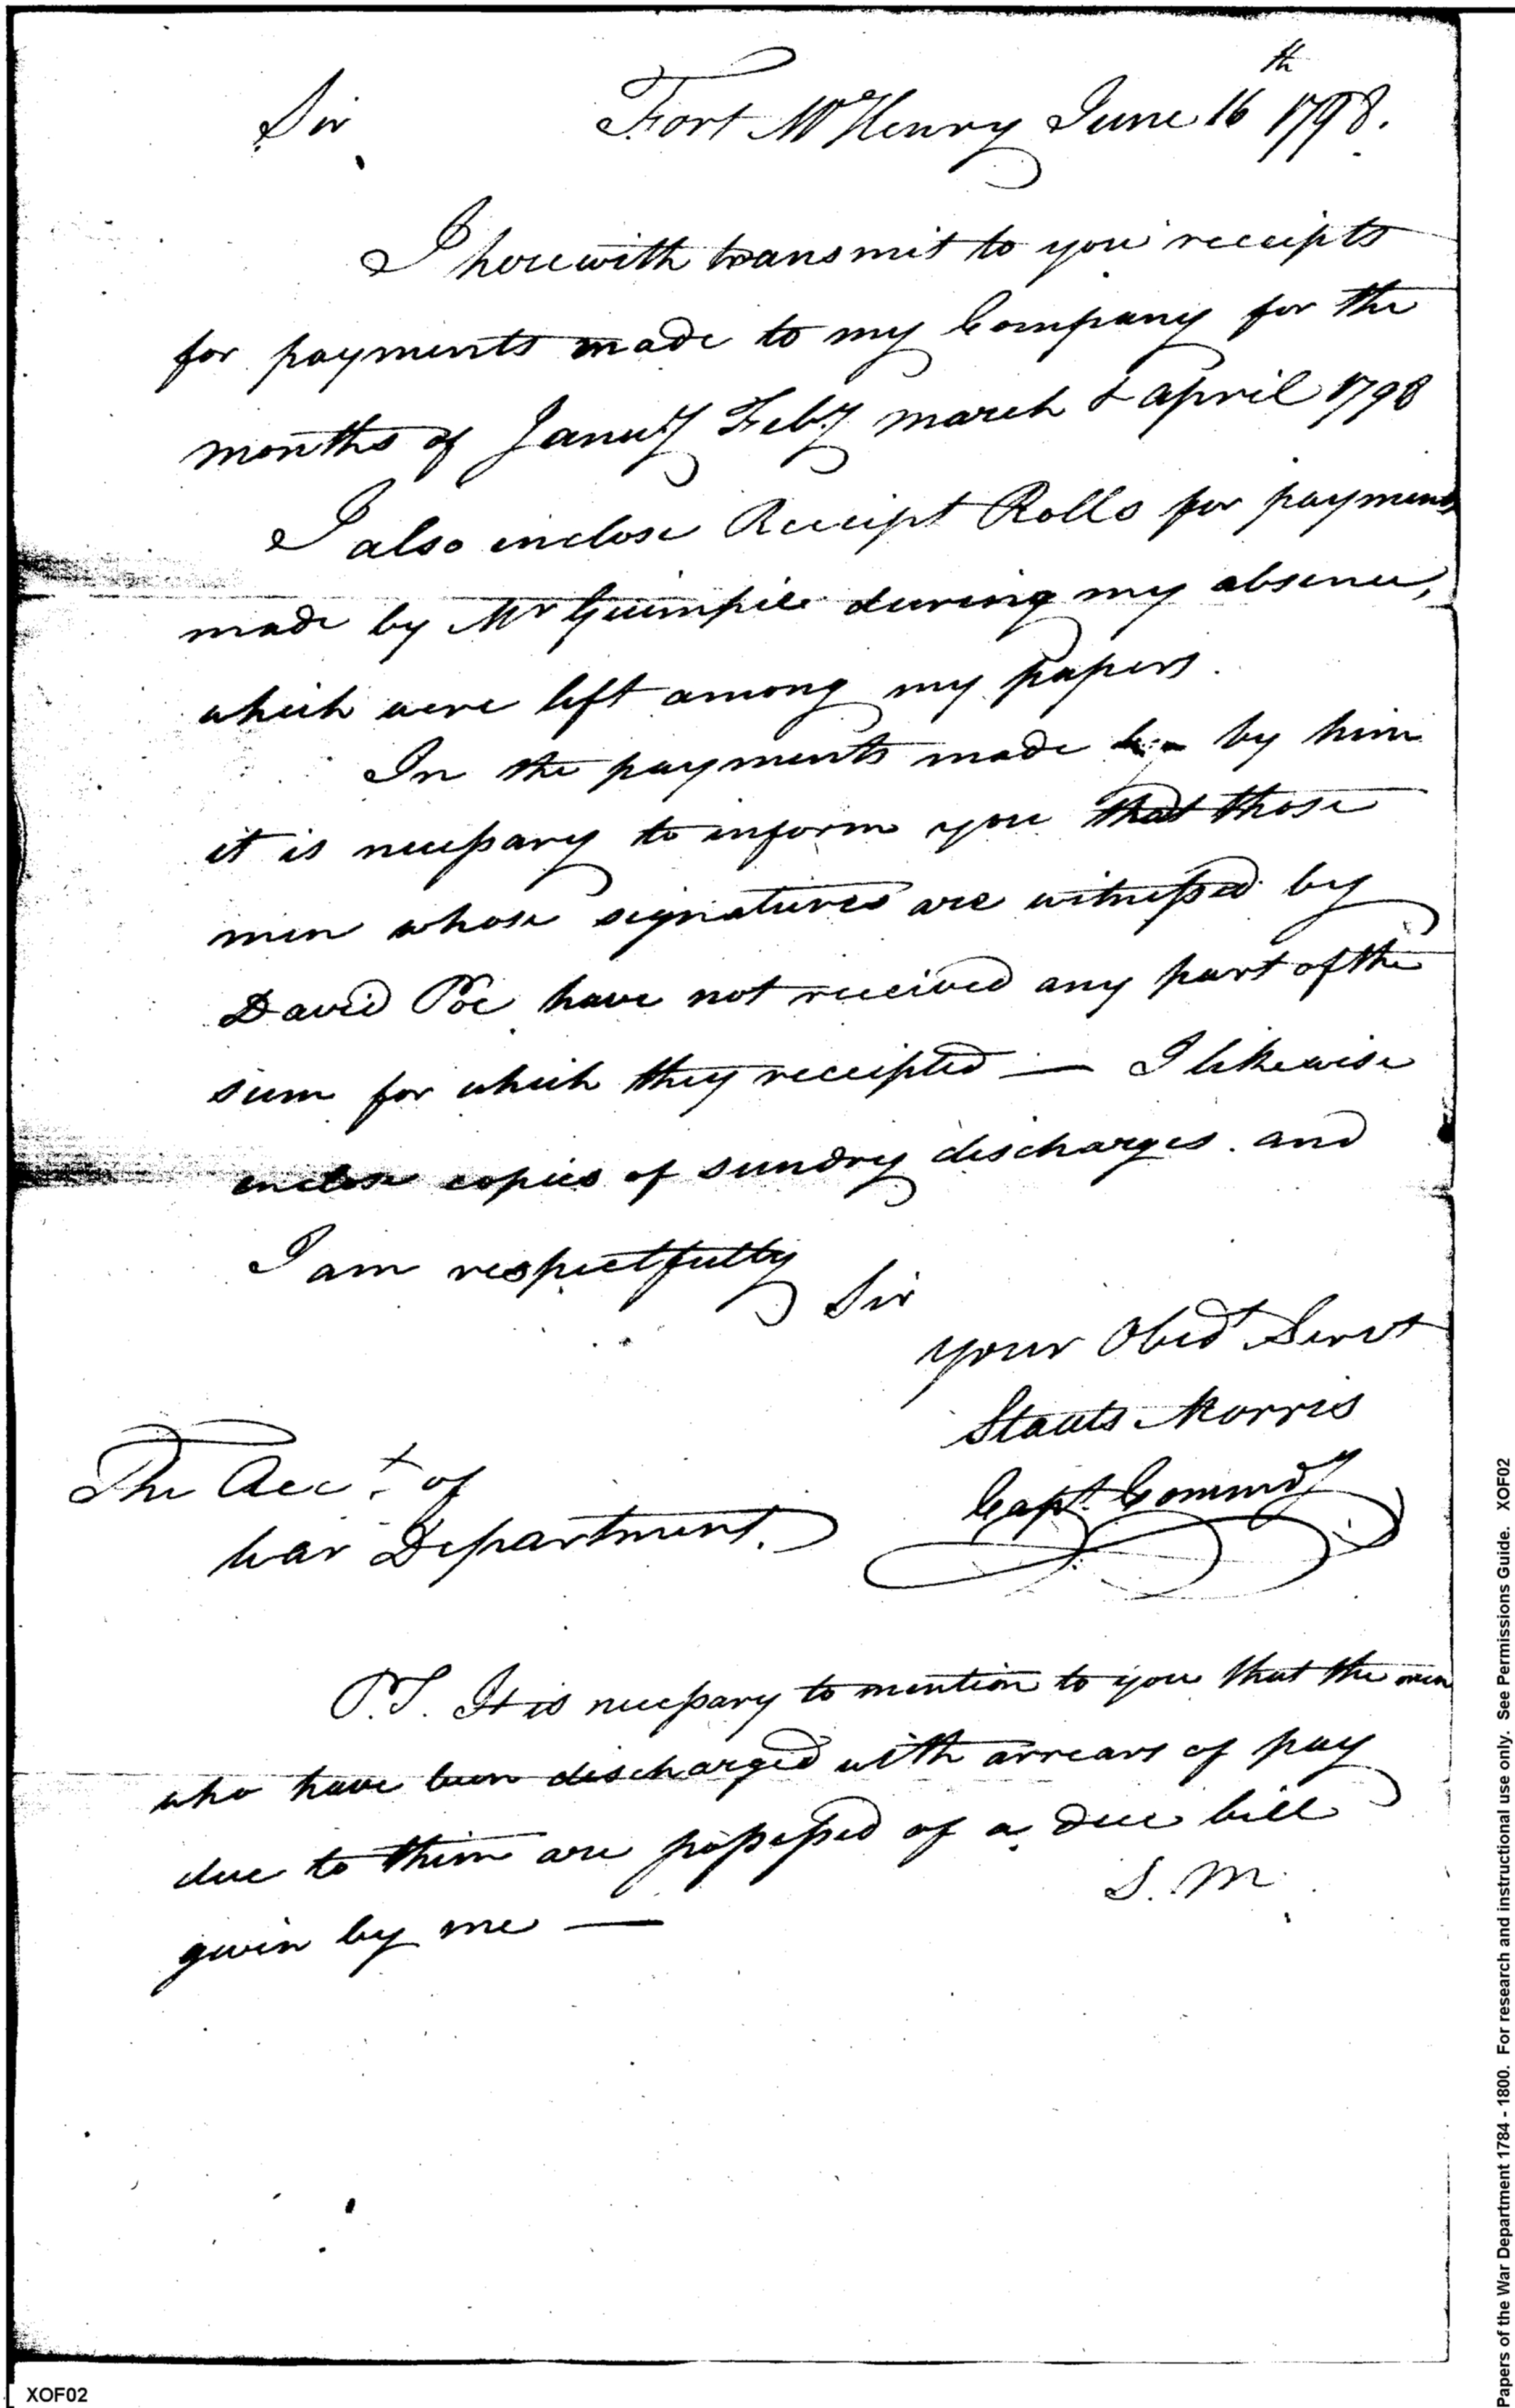 Sir Fort McHenry June 16th 1798.
I herewith transmit to you receipts
for payments made to my Company for the
months of Januy Feby march & april 1798
I also inclose Receipt Rolls for payments
made by Mr during my absence,
which were left among my papers.
In the payments made by him
it is necessary to inform you that those
men whose signatures are witnessed by
David Poe have not received any part of the
sum for which they receipted — I likewise
enclose copies of sundry discharges. and
I am respectfully
Sir
your Obedt Servt
Staats Morris
Capt. Commdg
The Acct. of
War Department.
P.S. It is necessary to mention to you that the men
who have been discharged with arrears of pay
due to them are possessed of a due bill
given by me —
S. M.
XOF02
Papers of the War Department 1784 - 1800. For research and instructional use only. See Permissions Guide. XOF02